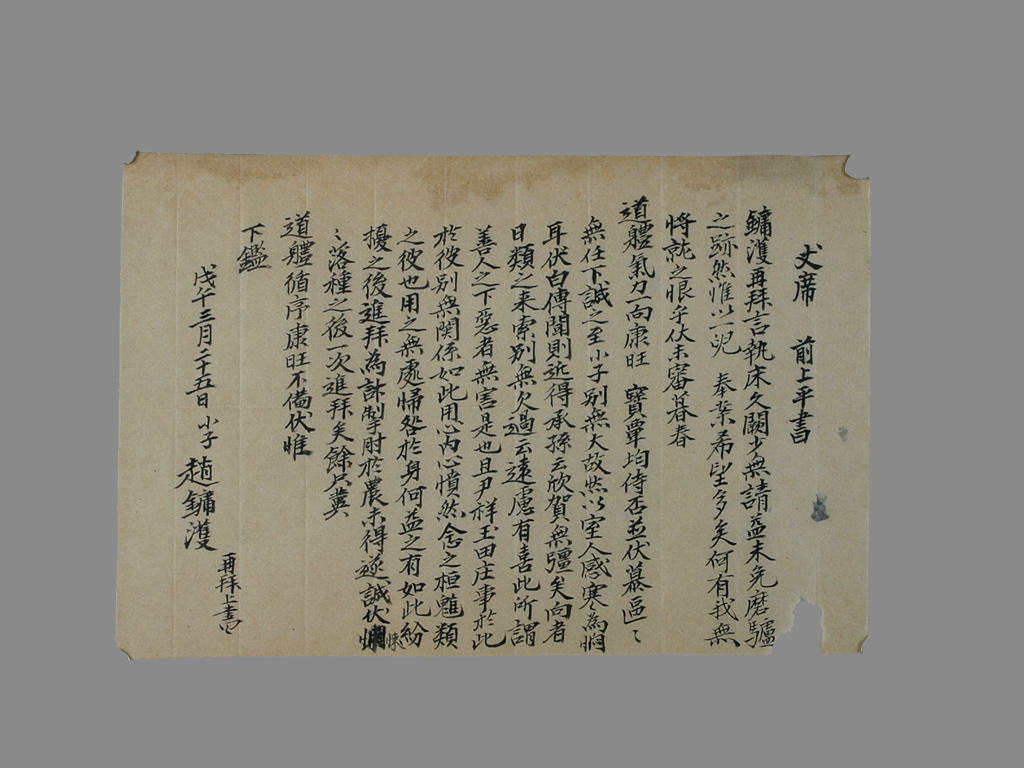 丈席 前上平書
鏞濩再拜言執床久闕少無請益未免磨驢
之跡然惟以一兒 奉業希望多矣何有我無
將就之恨乎伏未審暮春
道軆氣力一向康旺 寶覃均侍否並伏慕區〻
無任下誠之至小子別無大故然以室人感寒為悶
耳伏白傳聞則近得承孫云欣賀無疆矣向者
日類之來索別無欠過云遠慮有喜此所謂
善人之下惡者無害是也且尹祥玉田庄事於此
於彼別無関係如此用心內心憤然念之桓魋類
之彼也用之無處歸咎於身何益之有如此紛
擾之後進拜為誅掣肘於農未得遂誠伏悚
〻落種之後一次進拜矣餘只冀
道軆循序康旺不備伏惟
下鑑
戊午三月二十五日 小子 趙鏞濩 再拜上書